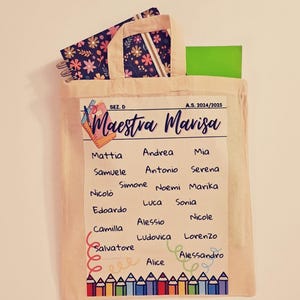 SEZ. D A.S. 2024/2025
Maestra Marisa
Mattia Andrea Mia
Samuele Antonio Serena
Nicolò Simone Noemi Marika
Edoardo Luca Sonia
Camilla Alessio Nicole
Salvatore Ludovica Lorenzo
Alice Alessandro